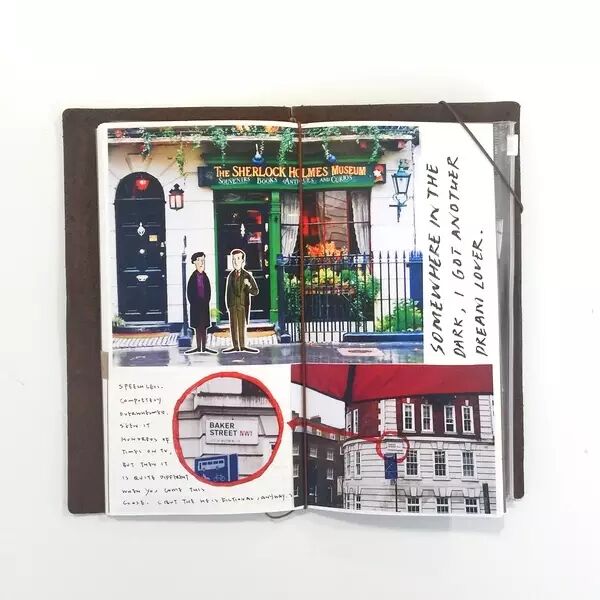 THE SHERLOCK HOLMES MUSEUM
SOUVENIRS BOOKS ANTIQUES AND CURIOS
SOMEWHERE IN THE
DARK, I GOT ANOTHER
DREAM LOVER.
SPEECHLESS.
COMPLETELY
OVERWHELMED.
SEEN IT
HUNDREDS OF
TIMES ON TV,
BUT THEN IT
IS QUITE DIFFERENT
WHEN YOU COME THIS
CLOSE. (BUT THE HE IS FICTIONAL, ANYWAY.)
BAKER
STREET NW1